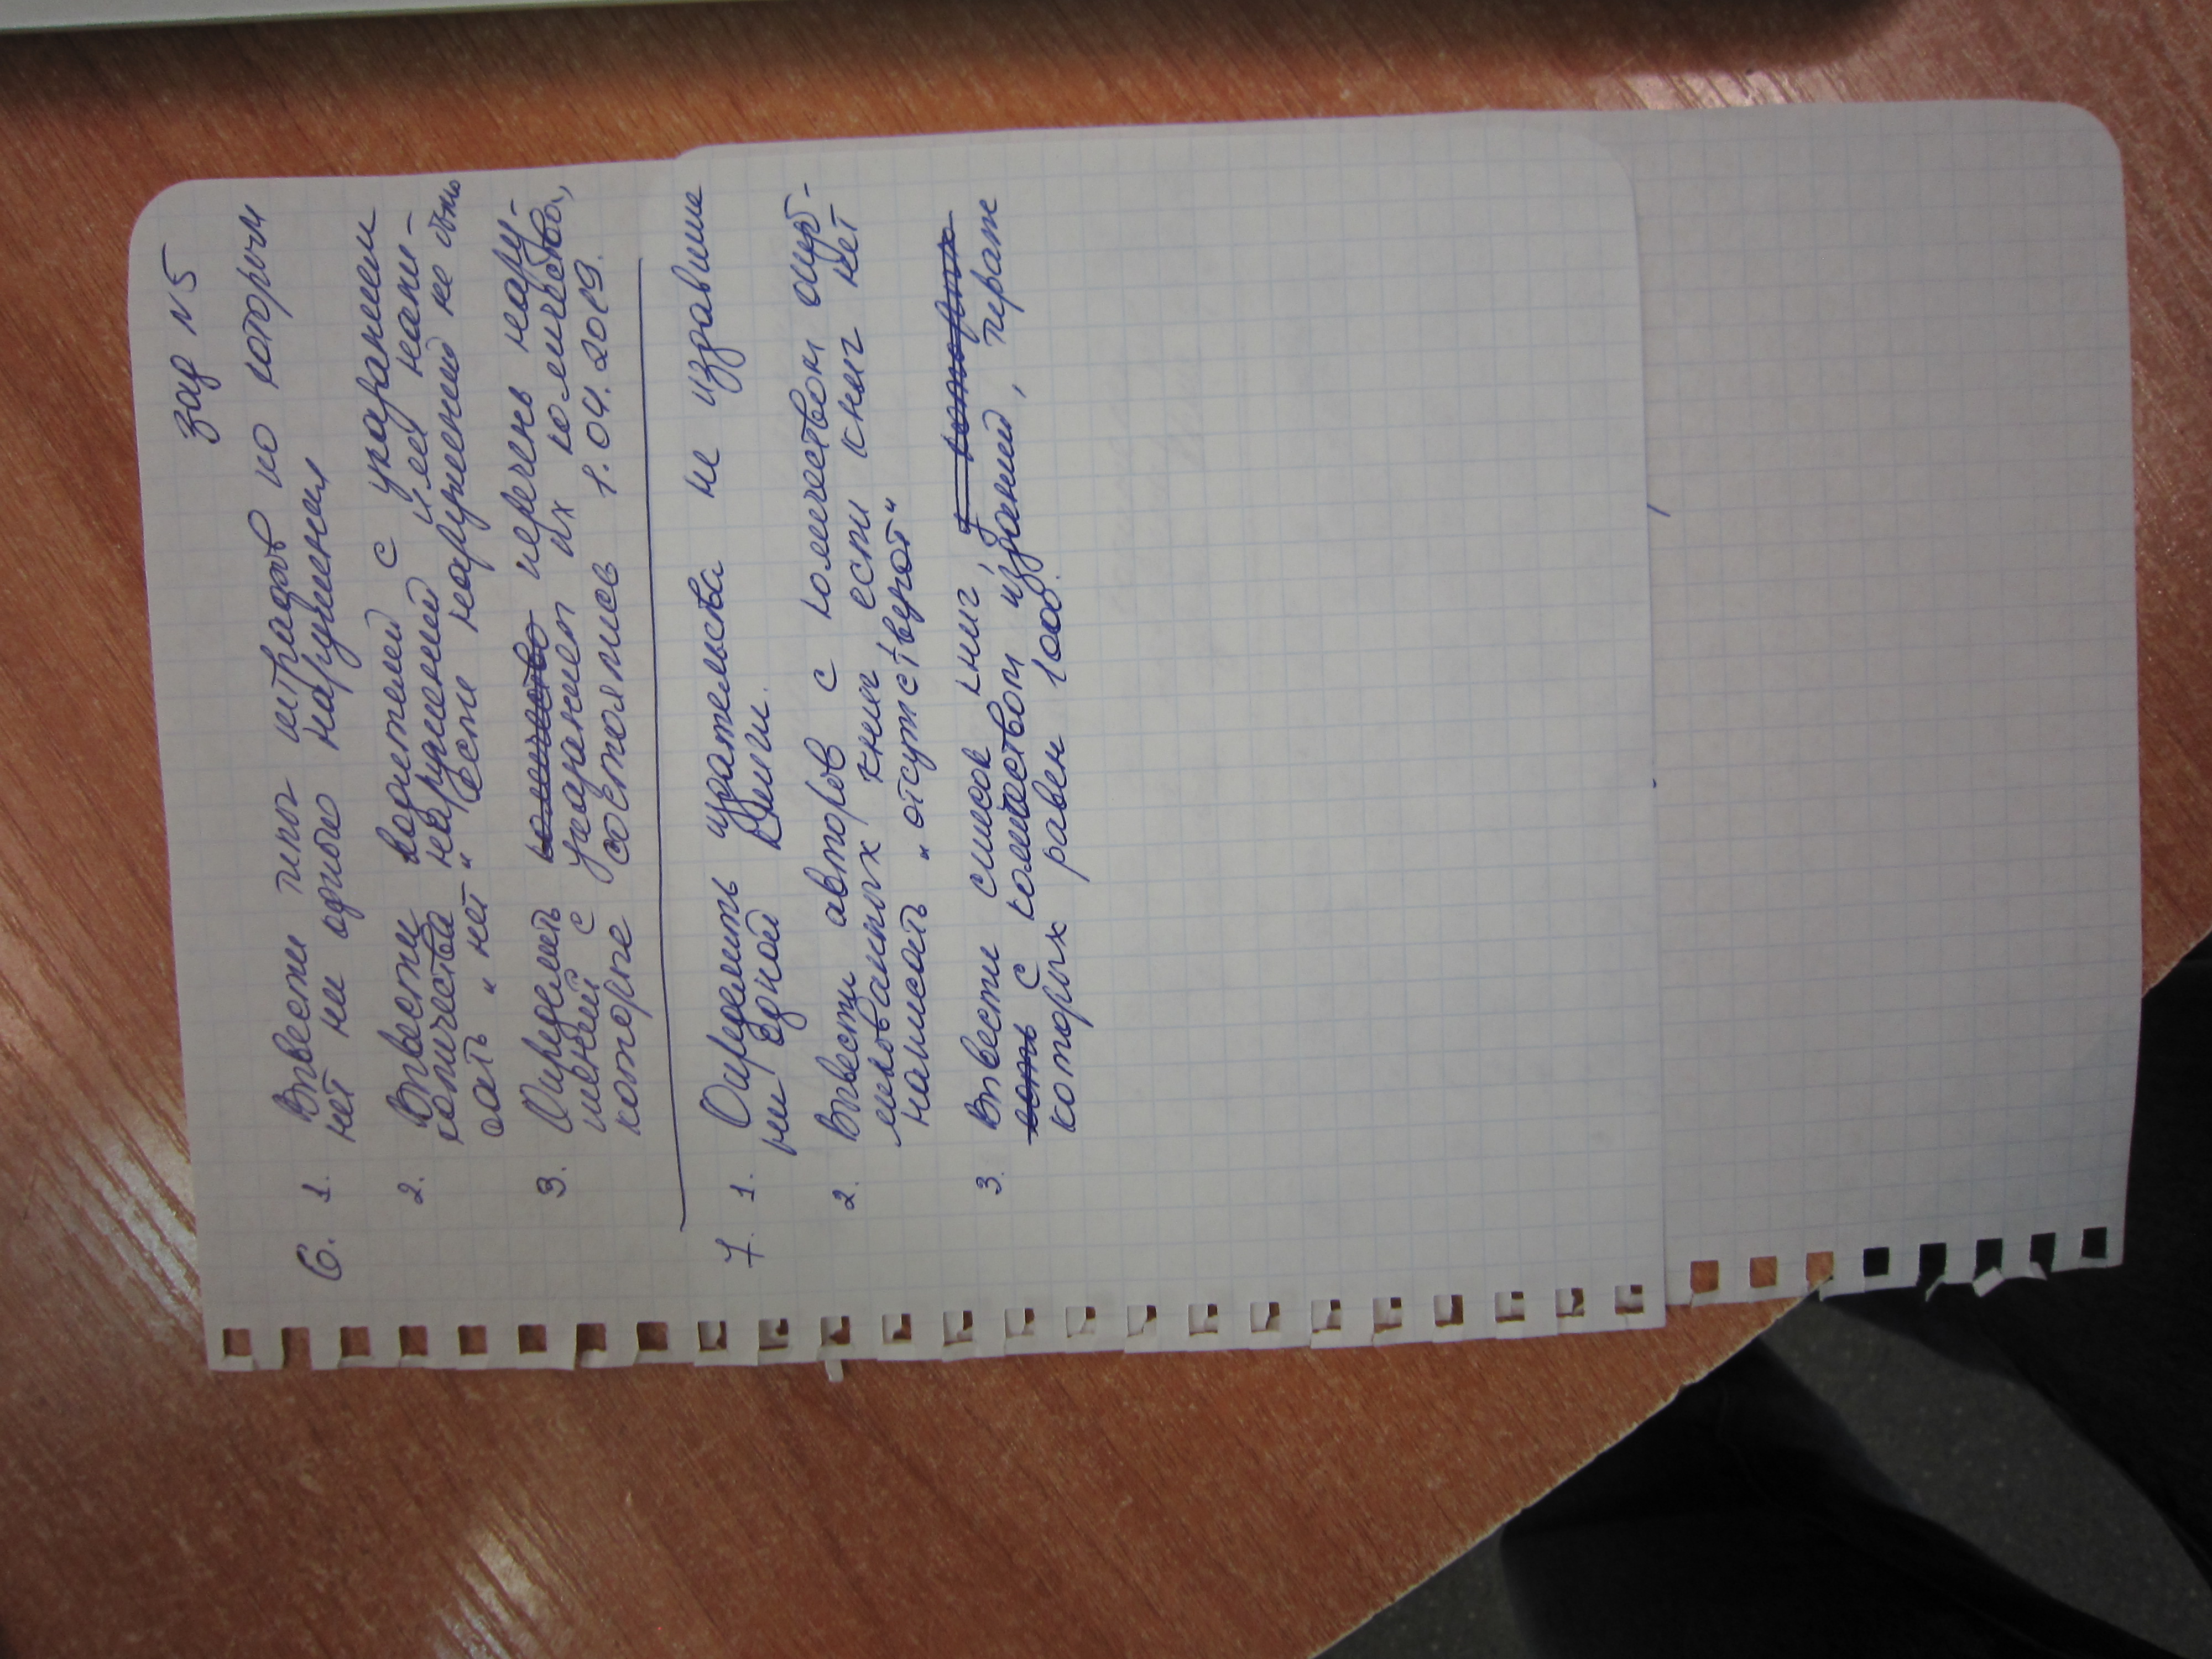 зад №5
6. 1. Вывести типы штрафов по которым
нет ни одного нарушения
2. Вывести водителей с указанием
количества нарушений или напи-
сать „нет“ если нарушений не было
3. Определить количество перечень нару-
шений с указанием их количества,
которые состоялись 1.04.2019.
7. 1. Определить издательства не издавшие
ни одной книги.
2. Вывести авторов с количеством опуб-
ликованных книг, если книг нет
написать „отсутствуют“
3. Вывести список книг, у которых
есть с количеством изданий, тираж
которых равен 1000.